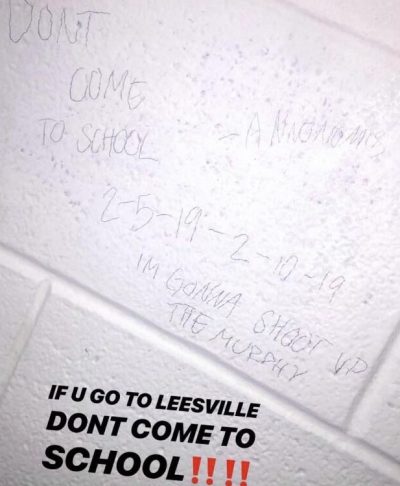 DONT
COME
TO SCHOOL
2-5-19-2-10-19
IM GONNA SHOOT UP
THE MURPHY
IF U GO TO LEESVILLE
DONT COME TO
SCHOOL‼️‼️